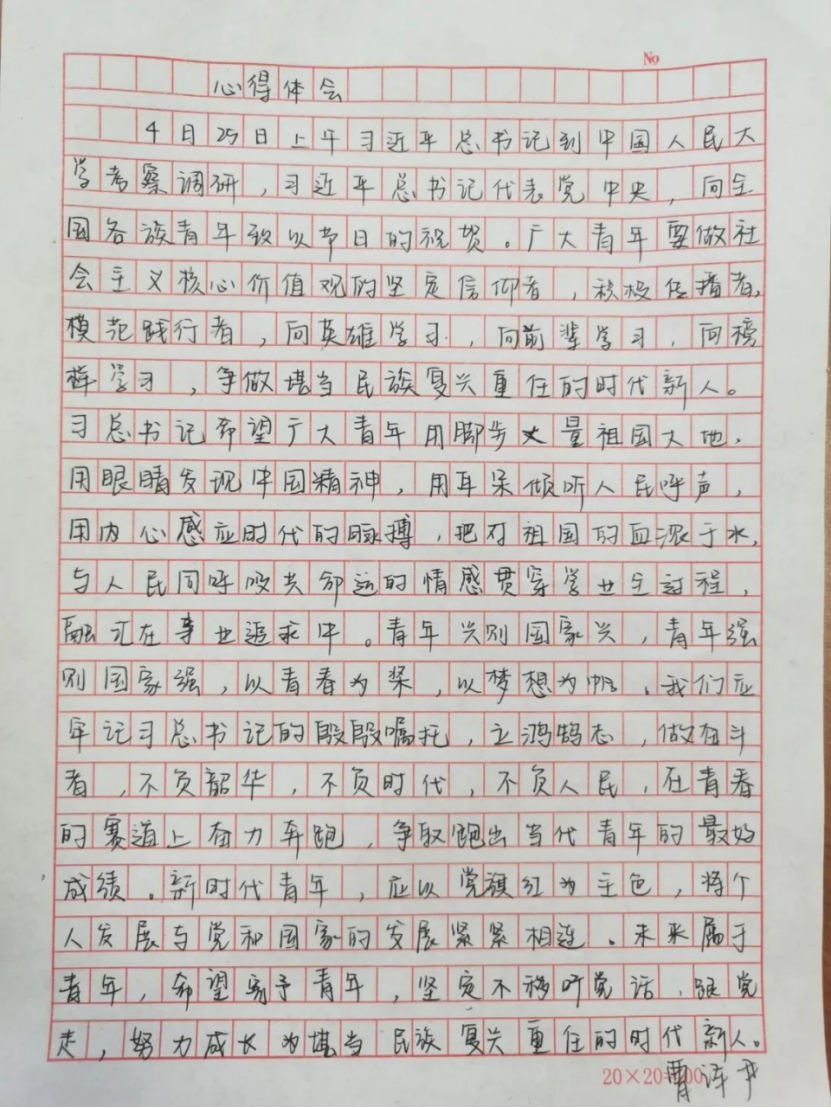 No
心得体会
4月25日上午习近平总书记到中国人民大
学考察调研，习近平总书记代表党中央，向全
国各族青年致以节日的祝贺。广大青年要做社
会主义核心价值观的坚定信仰者，积极传播者，
模范践行者，向英雄学习，向前辈学习，向榜
样学习，争做堪当民族复兴重任的时代新人。
习总书记希望广大青年用脚步丈量祖国大地，
用眼睛发现中国精神，用耳朵倾听人民呼声，
用内心感应时代的脉搏，把对祖国的血浓于水，
与人民同呼吸共命运的情感贯穿学业全过程，
融汇在事业追求中。青年兴则国家兴，青年强
则国家强，以青春为桨，以梦想为帆，我们应
牢记习总书记的殷殷嘱托，立鸿鹄志，做奋斗
者，不负韶华，不负时代，不负人民，在青春
的赛道上奋力奔跑，争取跑出当代青年的最好
成绩。新时代青年，应以党旗红为主色，将个
人发展与党和国家的发展紧紧相连。未来属于
青年，希望寄予青年，坚定不移听党话，跟党
走，努力成长为堪当民族复兴重任的时代新人。
20×20=400